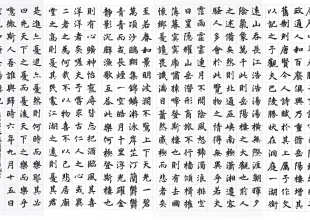 政通人和百廢具興乃重修岳陽樓增其
舊制刻唐賢今人詩賦於其上屬予作文
以記之予觀夫巴陵勝狀在洞庭一湖銜
遠山吞長江浩浩湯湯橫無際涯朝暉夕
陰氣象萬千此則岳陽樓之大觀也前人
之述備矣然則北通巫峽南極瀟湘遷客
騷人多會於此覽物之情得無異乎若夫
霪雨霏霏連月不開陰風怒號濁浪排空
日星隱耀山岳潛形商旅不行檣傾楫摧
薄暮冥冥虎嘯猿啼登斯樓也則有去國
懷鄉憂讒畏譏滿目蕭然感極而悲者矣
至若春和景明波瀾不驚上下天光一碧
萬頃沙鷗翔集錦鱗游泳岸芷汀蘭郁郁
青青而或長煙一空皓月千里浮光耀金
靜影沉璧漁歌互答此樂何極登斯樓也
則有心曠神怡寵辱皆忘把酒臨風其喜
洋洋者矣嗟夫予嘗求古仁人之心或異
二者之為何哉不以物喜不以己悲居廟
堂之高則憂其民處江湖之遠則憂其君
是進亦憂退亦憂然則何時而樂耶其必
曰先天下之憂而憂後天下之樂而樂乎
噫微斯人吾誰與歸時六年九月十五日